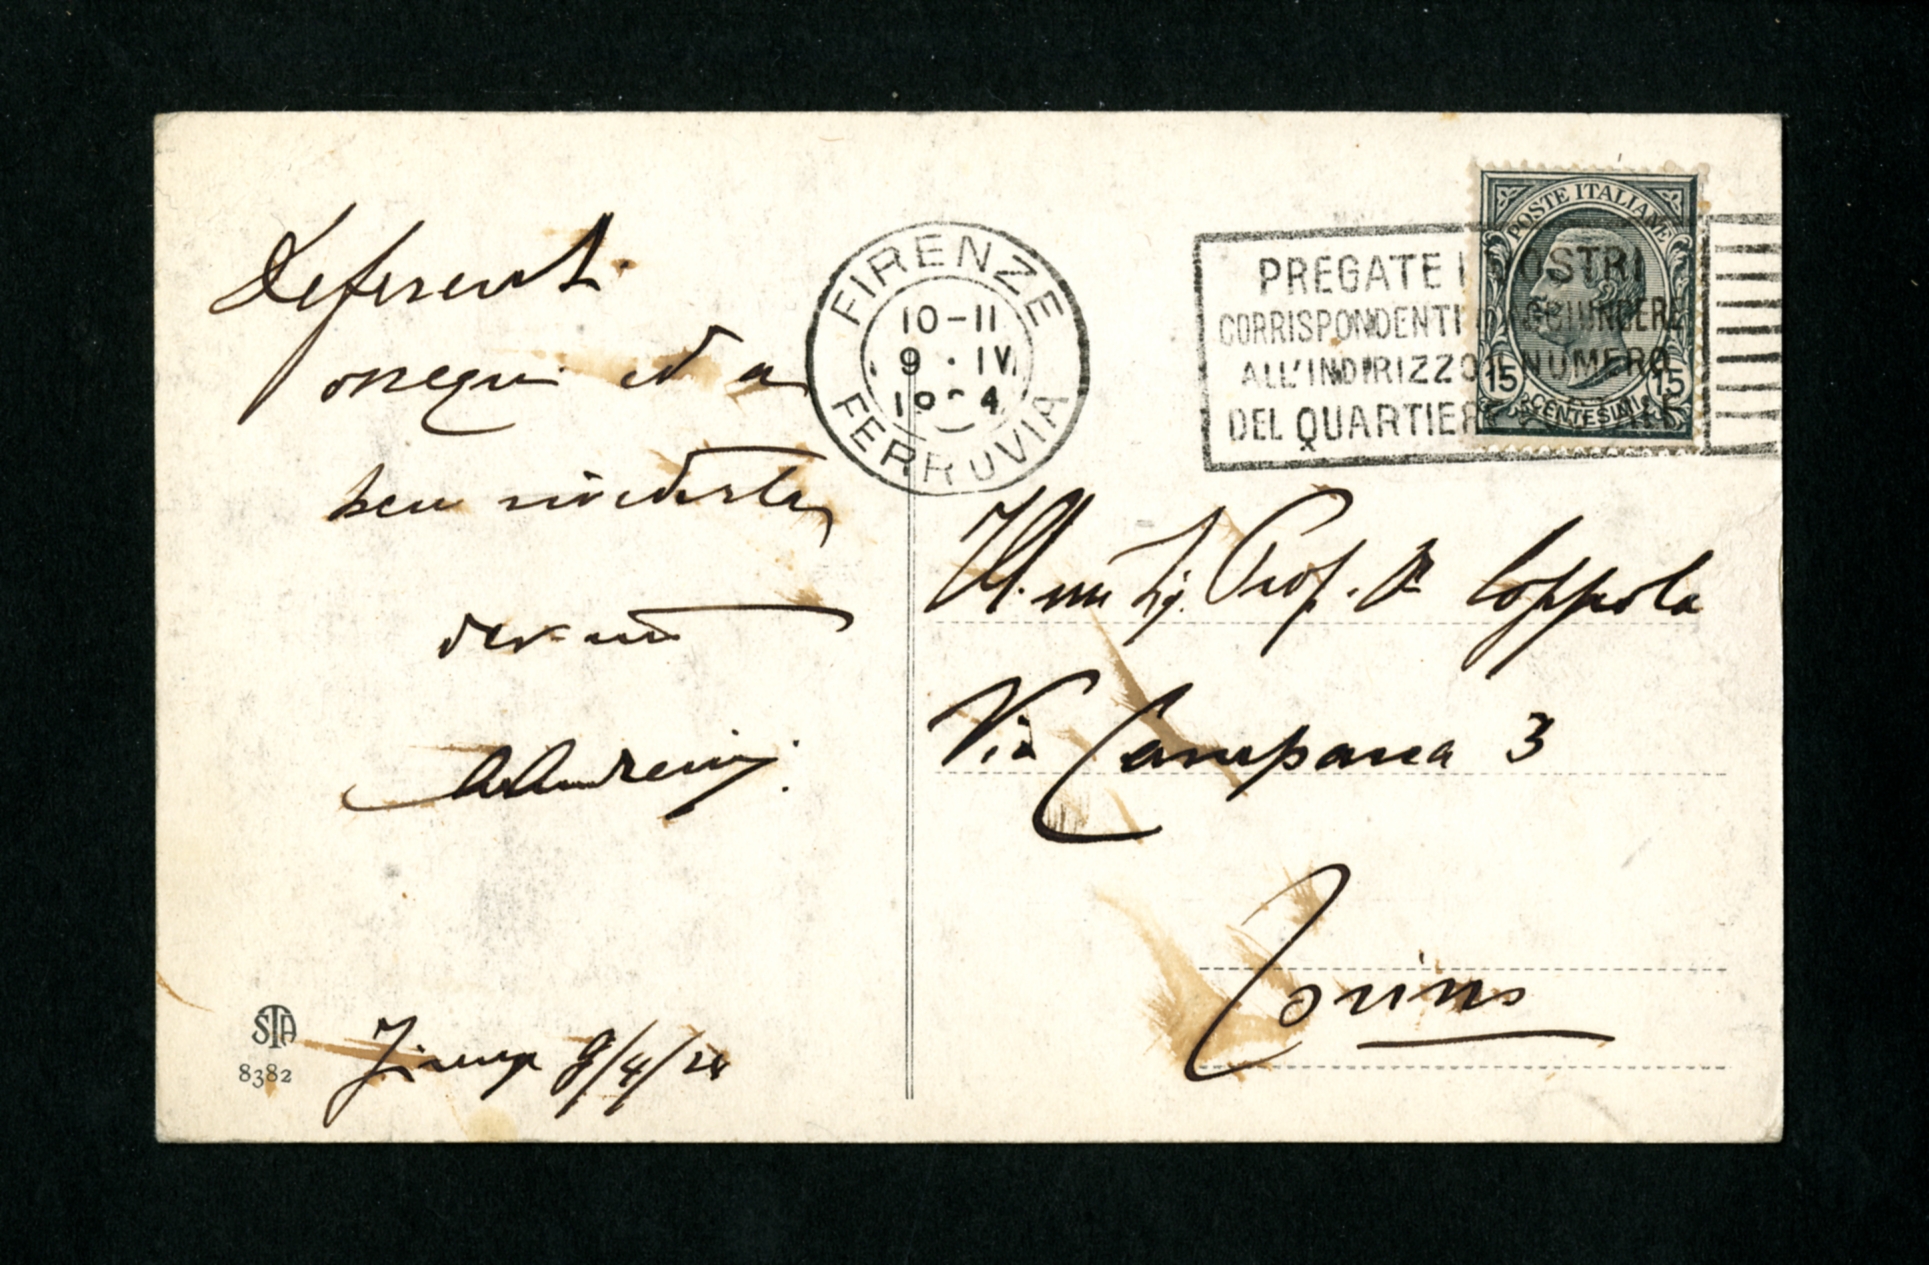 Deferenti
ossequi ed a
ben rivederla
dev.mo
A Andreini
Firenze 8/4/24
STA
8382
FIRENZE
10-11
9 · IV
19 4
FERROVIA
PREGATE I VOSTRI
CORRISPONDENTI AGGIUNGERE
ALL'INDIRIZZO IL NUMERO
DEL QUARTIERE
POSTE ITALIANE
15 15
CENTESIMI
Ill.mo Sig. Prof. Coppola
Via Campana 3
Torino